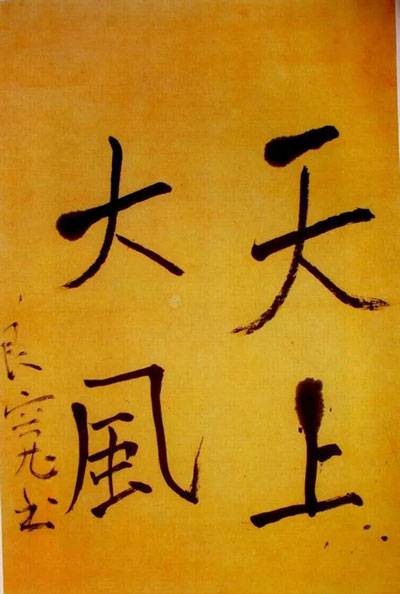 天上
大風
良寛書